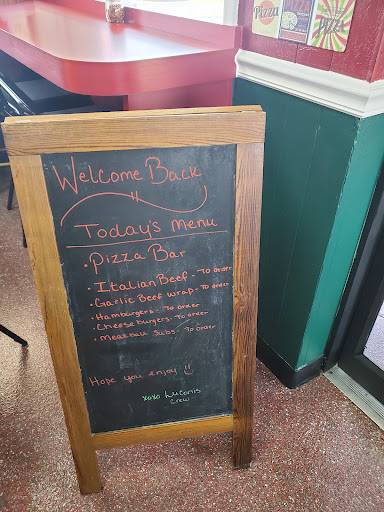 Pizza
Pizza
Welcome Back
Today's Menu
• Pizza Bar
• Italian Beef - To order
• Garlic Beef wrap - To order
• Hamburgers - To order
• Cheeseburgers - To order
• Meatball Subs - To order
Hope you enjoy
xoxo Luconis
Crew